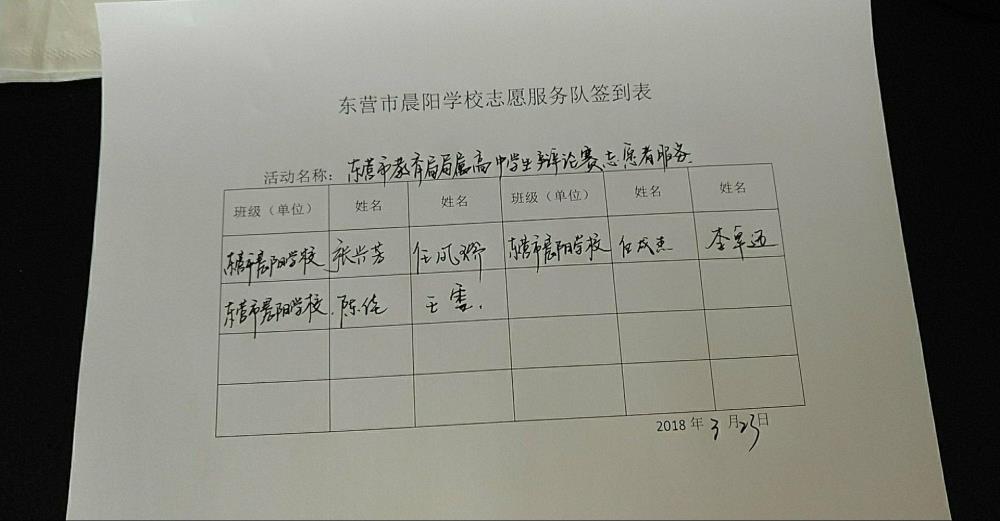 东营市晨阳学校志愿服务队签到表
活动名称：东营市教育局局属高中学生辩论赛志愿者服务
班级（单位） 姓名 姓名 班级（单位） 姓名 姓名
东营市晨阳学校 张兴芳 任凤娇 东营市晨阳学校 任成杰 李卓
东营市晨阳学校 陈佳 王雪
2018年3月23日